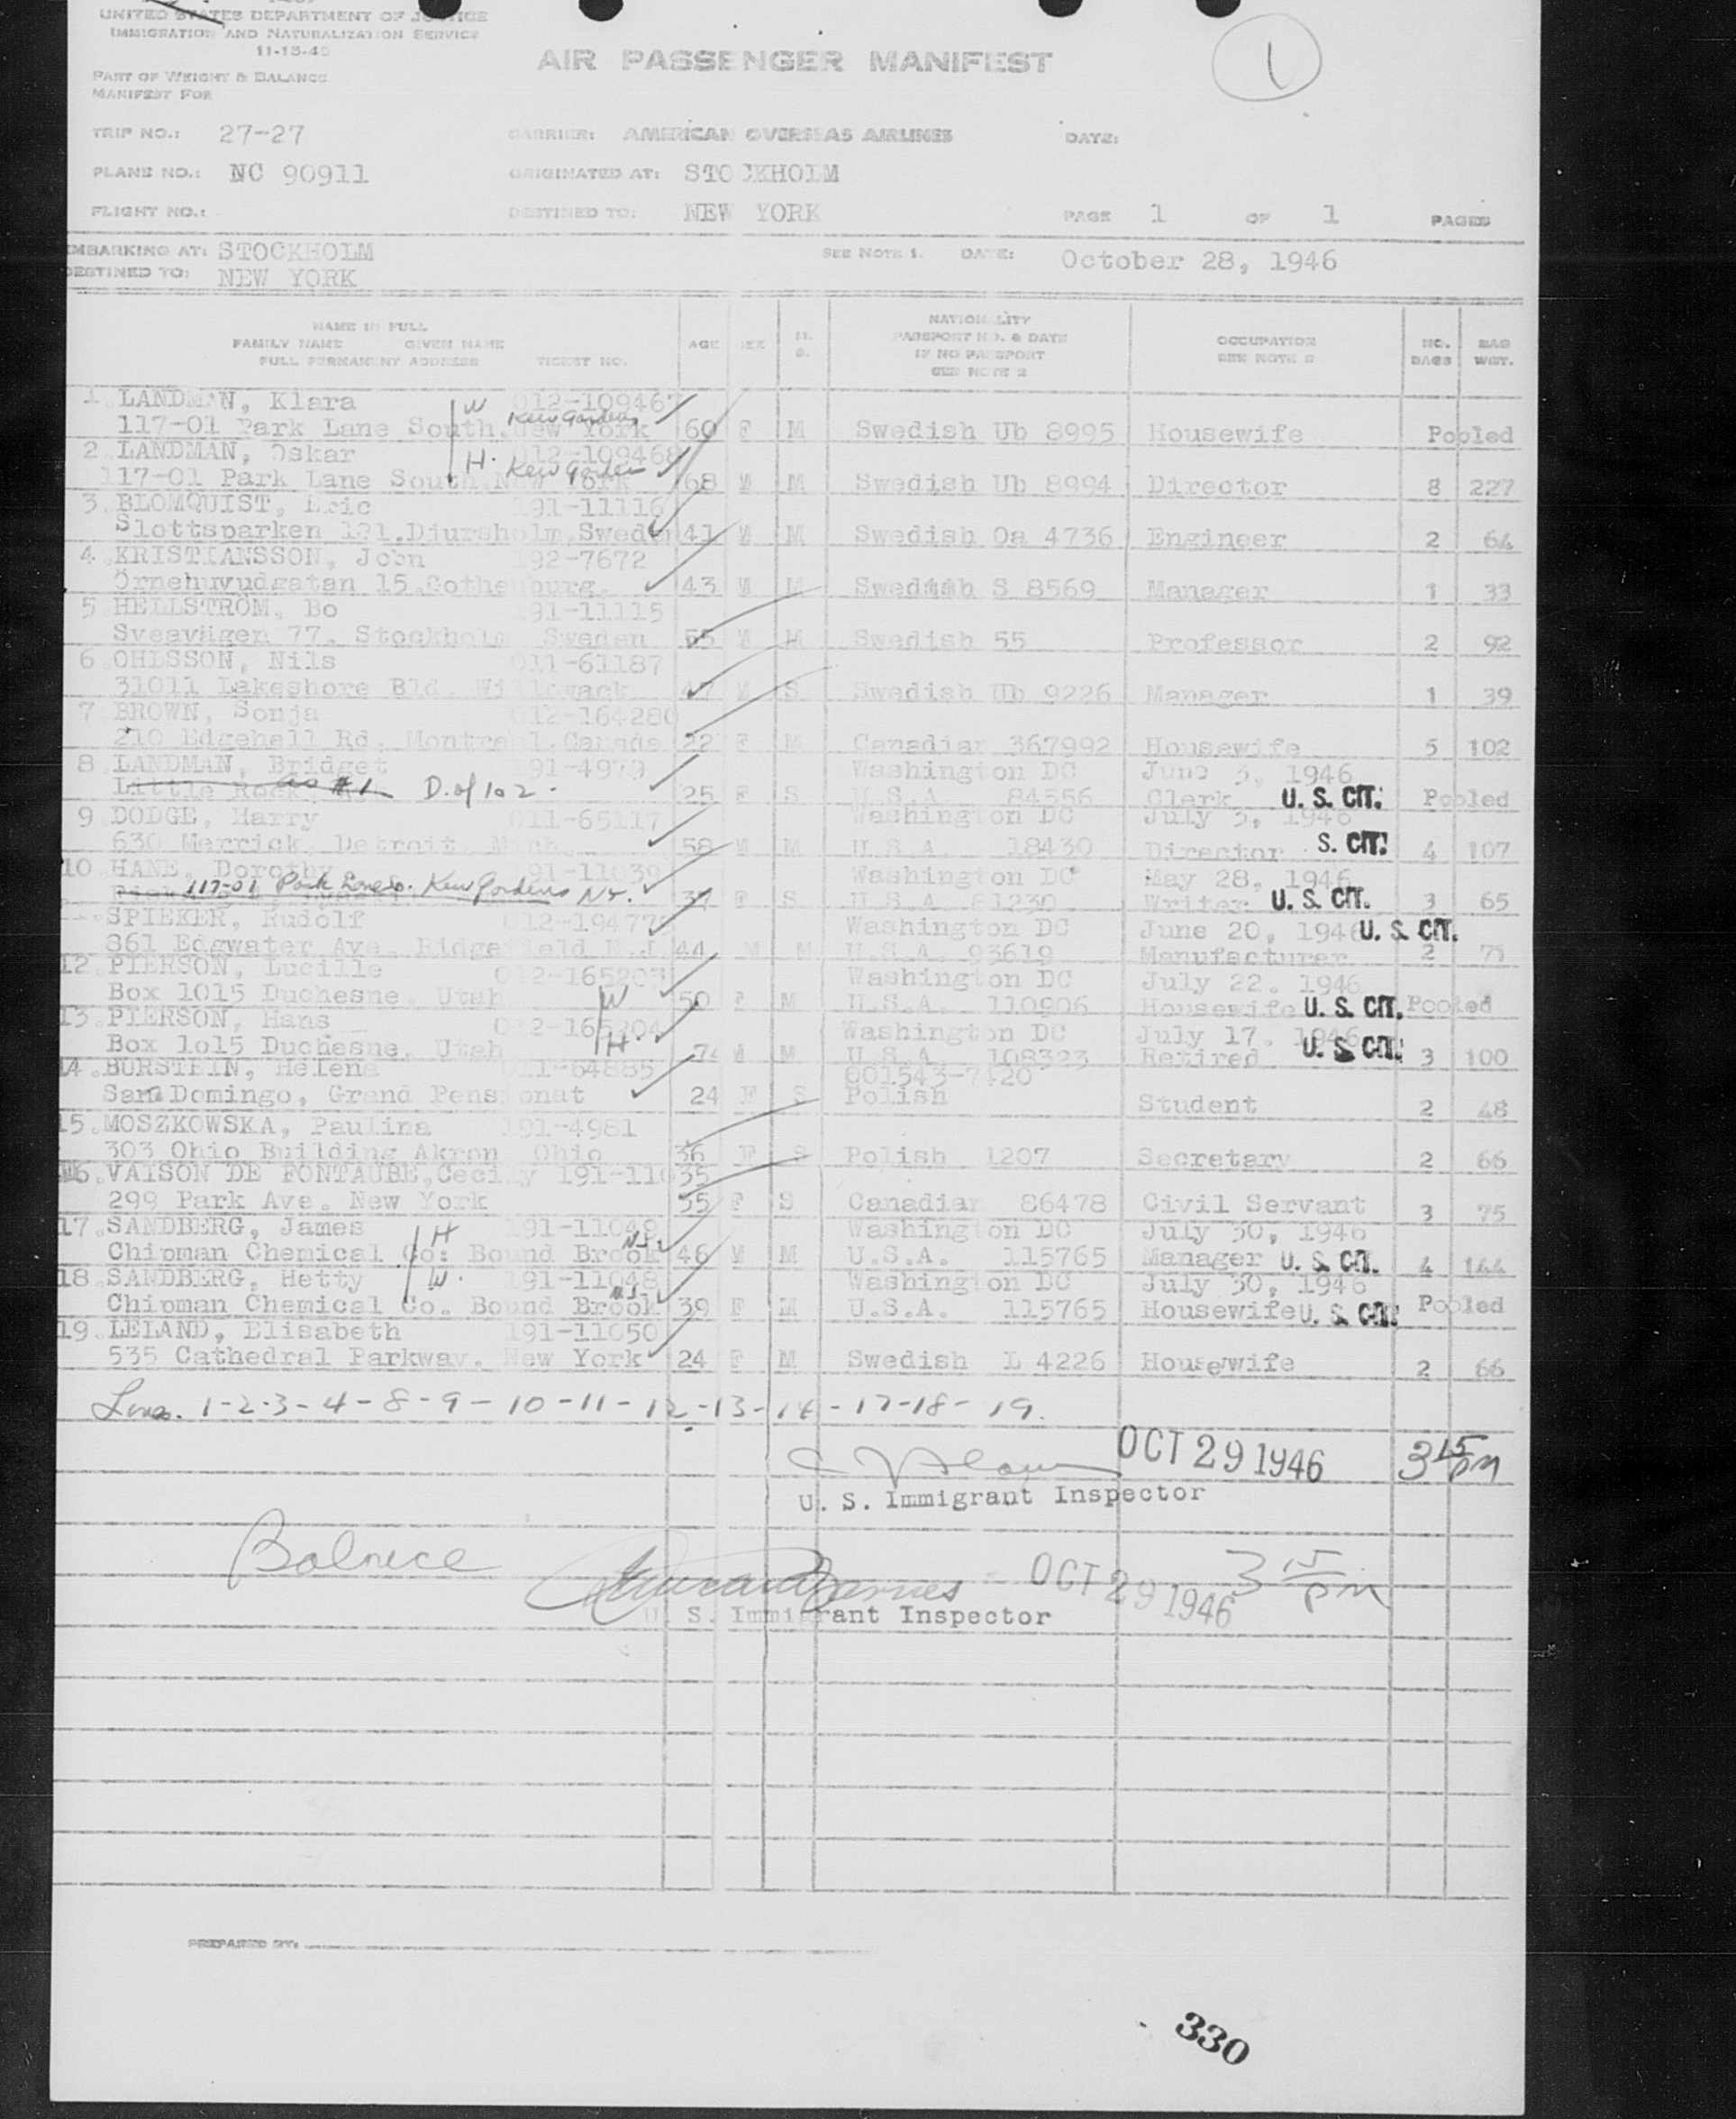 UNITED STATES DEPARTMENT OF JUSTICE
IMMIGRATION AND NATURALIZATION SERVICE
11-15-45
AIR PASSENGER MANIFEST
1
PART OF WEIGHT & BALANCE
MANIFEST FOR
TRIP NO.: 27-27 CARRIER: AMERICAN OVERSEAS AIRLINES DATE:
PLANE NO.: NC 90911 ORIGINATED AT: STOCKHOLM
FLIGHT NO.: DESTINED TO: NEW YORK PAGE 1 OF 1 PAGES
EMBARKING AT: STOCKHOLM SEE NOTE 1. DATE: October 28, 1946
DESTINED TO: NEW YORK
NAME IN FULL
FAMILY NAME GIVEN NAME
FULL PERMANENT ADDRESS TICKET NO.
AGE SEX M. S.
NATIONALITY
PASSPORT NO. & DATE
IF NO PASSPORT
SEE NOTE 2
OCCUPATION
SEE NOTE 2
NO. BAGS
BAG WGT.
1. LANDMAN, Klara W 012-109467
117-01 Park Lane South, New York Kew Gardens 60 F M Swedish Ub 8995 Housewife Pooled
2. LANDMAN, Oskar H. 012-109468
117-01 Park Lane South, New York Kew Gardens 68 M M Swedish Ub 8994 Director 8 227
3. BLOMQUIST, Eric 191-11116
Slottsparken 121, Djursholm, Sweden 41 M M Swedish Oa 4736 Engineer 2 64
4. KRISTIANSSON, John 192-7672
Örnehuvudgatan 15, Gothenburg. 43 M M Swedish S 8569 Manager 1 33
5. HELLSTRÖM, Bo 191-11115
Sveavägen 77, Stockholm Sweden 55 M M Swedish 55 Professor 2 92
6. OHLSSON, Nils 011-61187
31011 Lakeshore Bld. 47 M S Swedish Ub 9226 Manager 1 39
7. BROWN, Sonja 012-164280
210 Edgehall Rd. Montreal, Canada 22 F M Canadian 367992 Housewife 5 102
8. LANDMAN, Bridget 191-4979 Washington DC June 3, 1946
Little Rock as #1 D. of 1 & 2. 25 F S U.S.A. 84556 Clerk U. S. CIT. Pooled
9. DODGE, Harry 011-65117 Washington DC July 3, 1946
630 Merrick, Detroit Mich. 58 M M U.S.A. 18430 Director S. CIT. 4 107
10. HANE, Dorothy 191-11039 Washington DC May 28, 1946
117-01 Park Lane So. Kew Gardens N.Y. 37 F S U.S.A. 61230 Writer U. S. CIT. 3 65
11. SPIEKER, Rudolf 012-194772 Washington DC June 20, 1946 U. S. CIT.
861 Edgwater Ave. Ridgefield N.J. 44 M M U.S.A. 93619 Manufacturer 2 75
12. PIERSON, Lucille 012-165203 Washington DC July 22, 1946
Box 1015 Duchesne, Utah W 50 F M U.S.A. 110906 Housewife U. S. CIT. Pooled
13. PIERSON, Hans 012-165204 Washington DC July 17, 1946
Box 1o15 Duchesne, Utah H. 74 M M U.S.A. 108323 Retired U. S. CIT. 3 100
14. BURSTEIN, Helena 011-64885 601543-7420
San Domingo, Grand Pensionat 24 F S Polish Student 2 48
15. MOSZKOWSKA, Paulina 191-4981
303 Ohio Building Akron Ohio 36 F S Polish 1207 Secretary 2 66
16. VAISON DE FONTAUBE, Cecily 191-11035
299 Park Ave. New York 55 F S Canadian 86478 Civil Servant 3 75
17. SANDBERG, James H 191-11049 Washington DC July 30, 1946
Chipman Chemical Co: Bound Brook N.J. 46 M M U.S.A. 115765 Manager U. S. CIT. 4 144
18. SANDBERG, Hetty W. 191-11048 Washington DC July 30, 1946
Chipman Chemical Co. Bound Brook N.J. 39 F M U.S.A. 115765 Housewife U. S. CIT. Pooled
19. LELAND, Elisabeth 191-11050
535 Cathedral Parkway, New York 24 F M Swedish L 4226 Housewife 2 66
Lines. 1-2-3-4-8-9-10-11-12-13-14-17-18-19.
OCT 29 1946 3 15 PM
U. S. Immigrant Inspector
Balance
OCT 29 1946 3 15 PM
U. S. Immigrant Inspector
PREPARED BY:
330